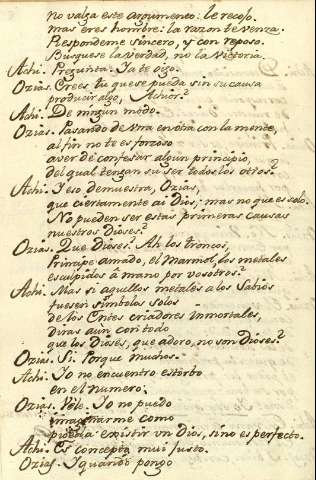 no valga este argumento: le recoso.
mas eres hombre: la razon te venza.
Respondeme sincero, y con reposo.
Busquese la verdad, no la victoria.
Achi. Pregunta. Ia te oigo.
Ozias. Crees tu que se pueda sin su causa
producir algo, Achior?
Achi. De ningun modo.
Ozias. Pasando de vna en otra con la mente,
al fin no te es forzoso
aver de confesar algun principio,
del qual tengan su ser todos los otros?
Achi. I eso demuestra, Ozias,
que ciertamente ai Dios; mas no que es solo.
No pueden ser estas primeras causas
nuestros Dioses?
Ozias. Que Dioses? Ah los troncos,
Principe amado, el marmol, los metales
esculpidos à mano por vosotros?
Achi. Mas si aquellos metales a los Sabios
fuesen simbolos solos
de los Entes criadores inmortales,
diras aun con todo
que los Dioses, que adoro, no son Dioses?
Ozias. Si. Porque muchos.
Achi. Io no encuentro estorbo
en el numero.
Ozias. Vele. Io no puedo
imaginarme como
pueda existir vn Dios, sino es perfecto.
Achi. Es concepto mui justo.
Ozias. I quando pongo